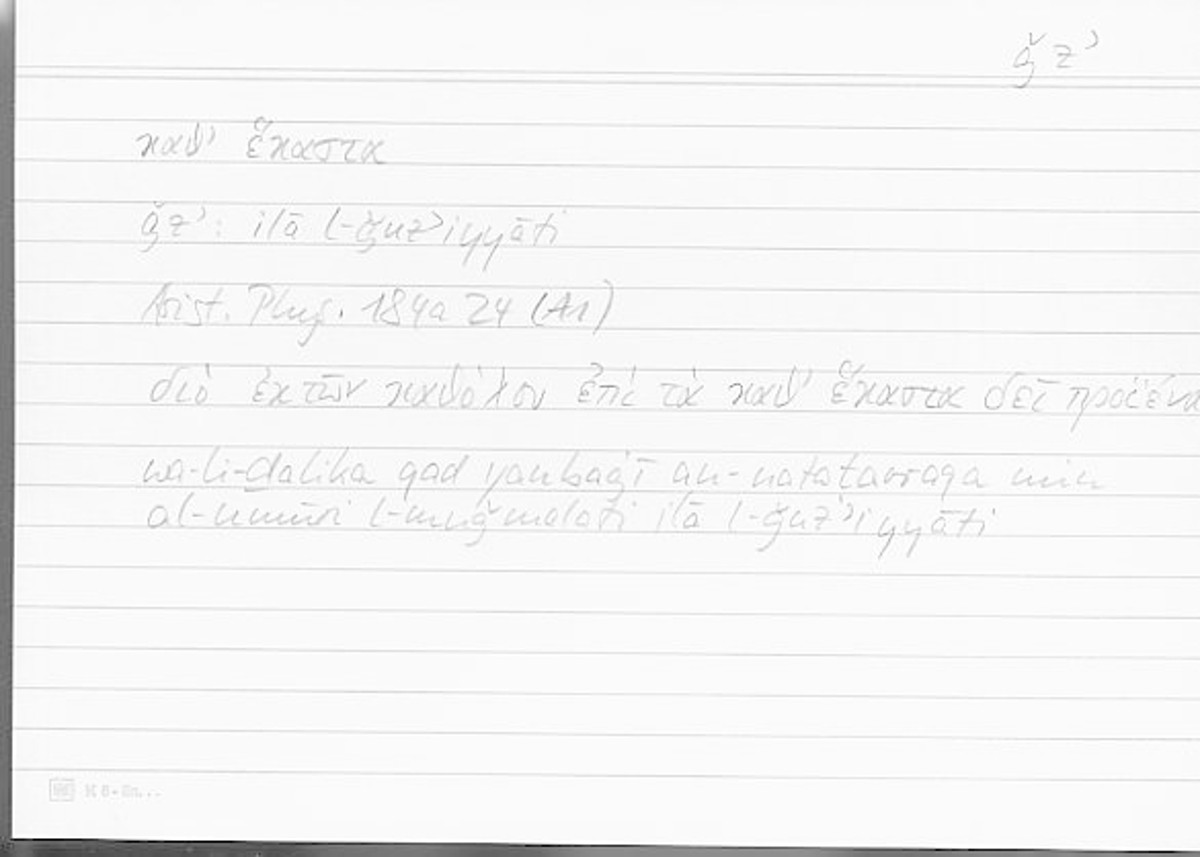 ǧzʾ
καθ' ἕκαστα
ǧzʾ: ilā l-ǧuzʾiyyāti
Arist. Phys. 184a 24 (A1)
διὸ ἐκ τῶν καθόλου ἐπὶ τὰ καθ' ἕκαστα δεῖ προϊένα
wa-li-ḏālika qad yanbaġī an-natatarraqa min
al-umūri l-muǧmalati ilā l-ǧuzʾiyyāti